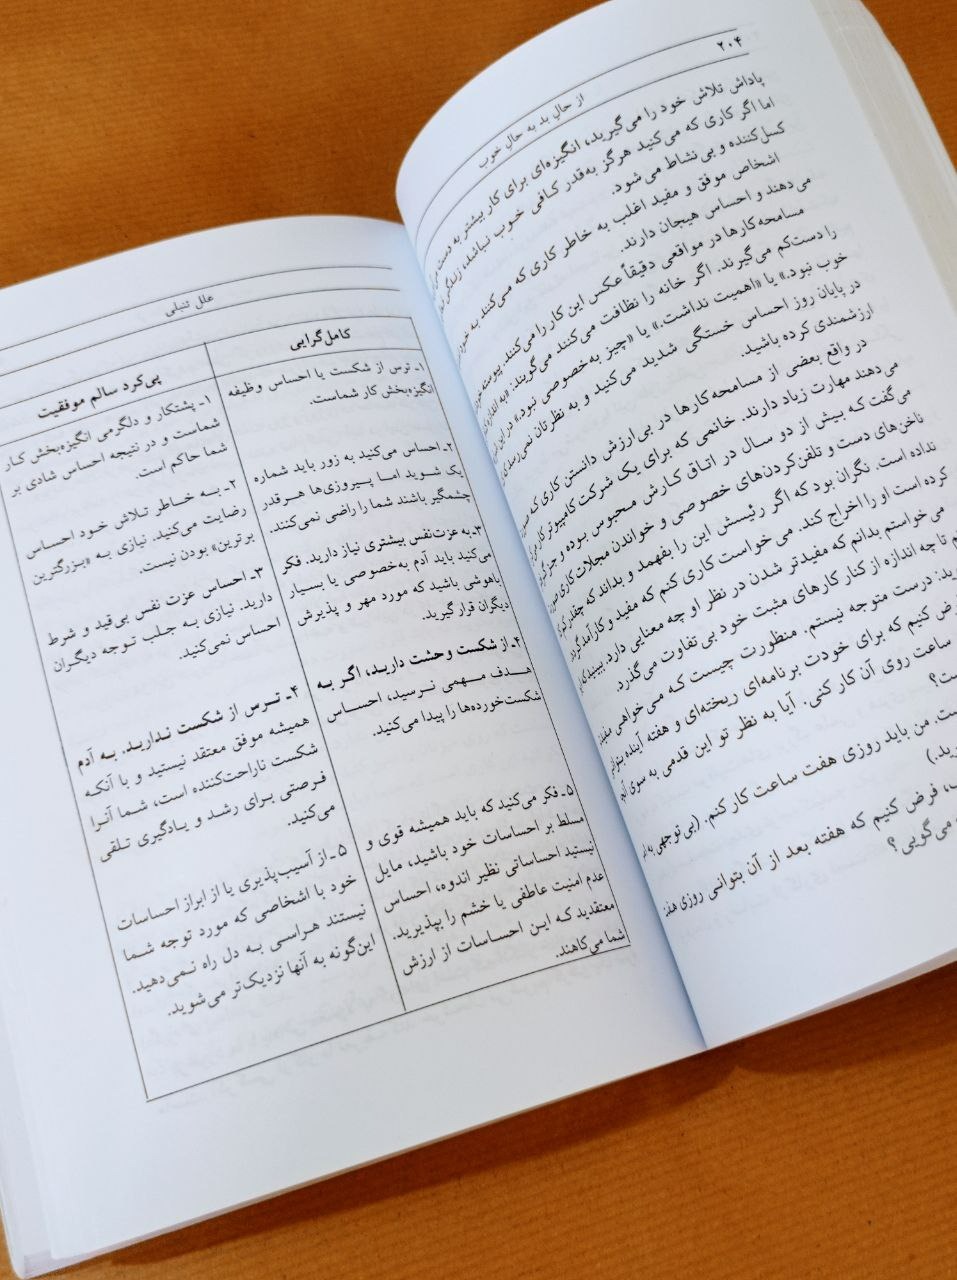 ۲۰۴
از حال بد به حال خوب
پاداش تلاش خود را می‌گیرید، انگیزه‌ای برای کار بیشتر به دست
اما اگر کاری که می‌کنید هرگز به‌قدر کافی خوب نباشد، زندگی
کسل‌کننده و بی‌نشاط می‌شود.
اشخاص موفق و مفید اغلب به خاطر کاری که می‌کنند به خود
می‌دهند و احساس هیجان دارند.
مسامحه‌کارها در مواقعی دقیقاً عکس این کار را می‌کنند. پیوسته
را دست‌کم می‌گیرند. اگر خانه را نظافت می‌کنند می‌گویند:
خوب نبود.» یا «اهمیت نداشت.» یا «چیز به‌خصوصی نبود» در این
در پایان روز احساس خستگی شدید می‌کنید و به نظرتان نمی‌رسد که
ارزشمندی کرده باشید.
در واقع بعضی از مسامحه‌کارها در بی‌ارزش دانستن کاری که
می‌دهند مهارت زیاد دارند. خانمی که برای یک شرکت کامپیوتر کار
می‌گفت که بیش از دو سال در اتاق کارش محبوس بوده و جز
ناخن‌های دست و تلفن‌کردن‌های خصوصی و خواندن مجلات کاری
نداده است. نگران بود که اگر رئیسش این را بفهمد و بداند که چقدر
کرده است او را اخراج کند. می‌خواست کاری کنم که مفید و کارآمد
می‌خواستم بدانم که مفیدتر شدن در نظر او چه معنایی دارد. ببینید که
تا چه اندازه از کنار کارهای مثبت خود بی‌تفاوت می‌گذرد.
درست متوجه نیستم. منظورت چیست که می‌خواهی مفید
فرض کنیم که برای خودت برنامه‌ای ریخته‌ای و هفته آینده بتوانی
ساعت روی آن کار کنی. آیا به نظر تو این قدمی به سوی
من باید روزی هفت ساعت کار کنم. (بی‌توجهی به
فرض کنیم که هفته بعد از آن بتوانی روزی
می‌گویی؟
علل تنبلی
کامل‌گرایی
پی‌کرد سالم موفقیت
۱ـ ترس از شکست یا احساس وظیفه
انگیزه‌بخش کار شماست.
۱ـ پشتکار و دلگرمی انگیزه‌بخش کار
شماست و در نتیجه احساس شادی بر
شما حاکم است.
۲ـ احساس می‌کنید به زور باید شماره
یک شوید اما پیروزی‌ها هرقدر
چشمگیر باشند شما را راضی نمی‌کنند.
۲ـ به خاطر تلاش خود احساس
رضایت می‌کنید. نیازی به «بزرگترین
برترین» بودن نیست.
۳ـ به عزت‌نفس بیشتری نیاز دارید. فکر
می‌کنید باید آدم به‌خصوصی یا بسیار
باهوشی باشید که مورد مهر و پذیرش
دیگران قرار گیرید.
۳ـ احساس عزت نفس بی‌قید و شرط
دارید. نیازی به جلب توجه دیگران
احساس نمی‌کنید.
۴ـ از شکست وحشت دارید، اگر به
هدف مهمی نرسید، احساس
شکست‌خورده‌ها را پیدا می‌کنید.
۴ـ ترس از شکست ندارید. به آدم
همیشه موفق معتقد نیستید و با آنکه
شکست ناراحت‌کننده است، شما آنرا
فرصتی برای رشد و یادگیری تلقی
می‌کنید.
۵ـ فکر می‌کنید که باید همیشه قوی و
مسلط بر احساسات خود باشید، مایل
نیستید احساساتی نظیر اندوه، احساس
عدم امنیت عاطفی یا خشم را بپذیرید.
معتقدید که این احساسات از ارزش
شما می‌کاهند.
۵ـ از آسیب‌پذیری یا از ابراز احساسات
خود با اشخاصی که مورد توجه شما
نیستند هراسی به دل راه نمی‌دهید.
این‌گونه به آنها نزدیک‌تر می‌شوید.